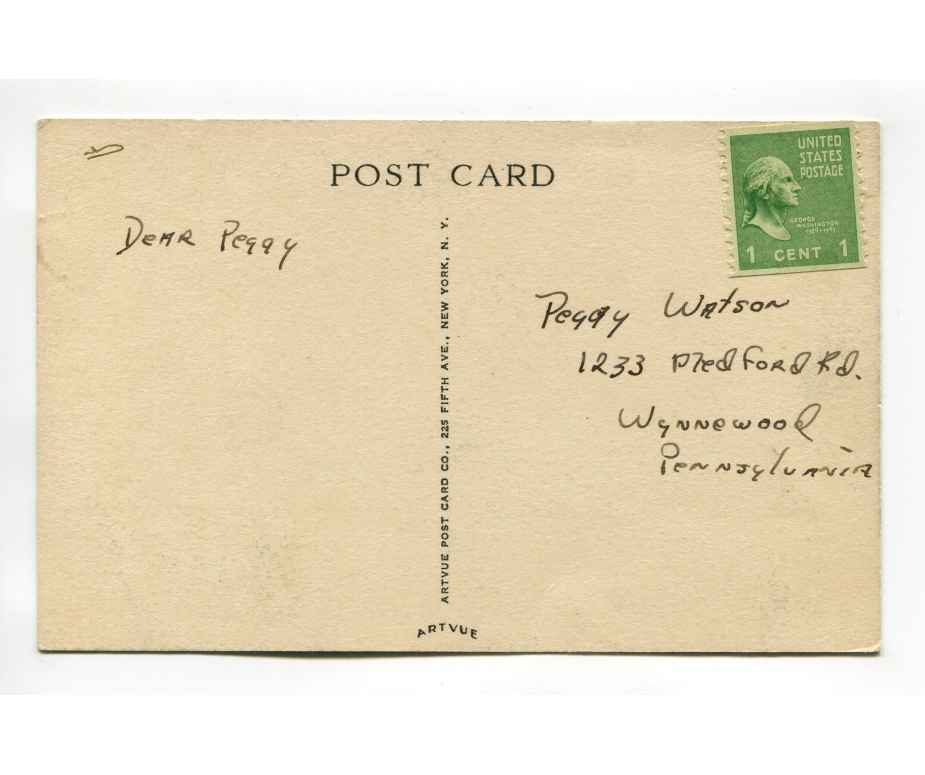 POST CARD
UNITED
STATES
POSTAGE
GEORGE
WASHINGTON
1 CENT 1
Dear Peggy
Peggy Watson
1233 Medford Rd.
Wynnewood
Pennsylvania
ARTVUE POST CARD CO., 225 FIFTH AVE., NEW YORK, N. Y.
ARTVUE